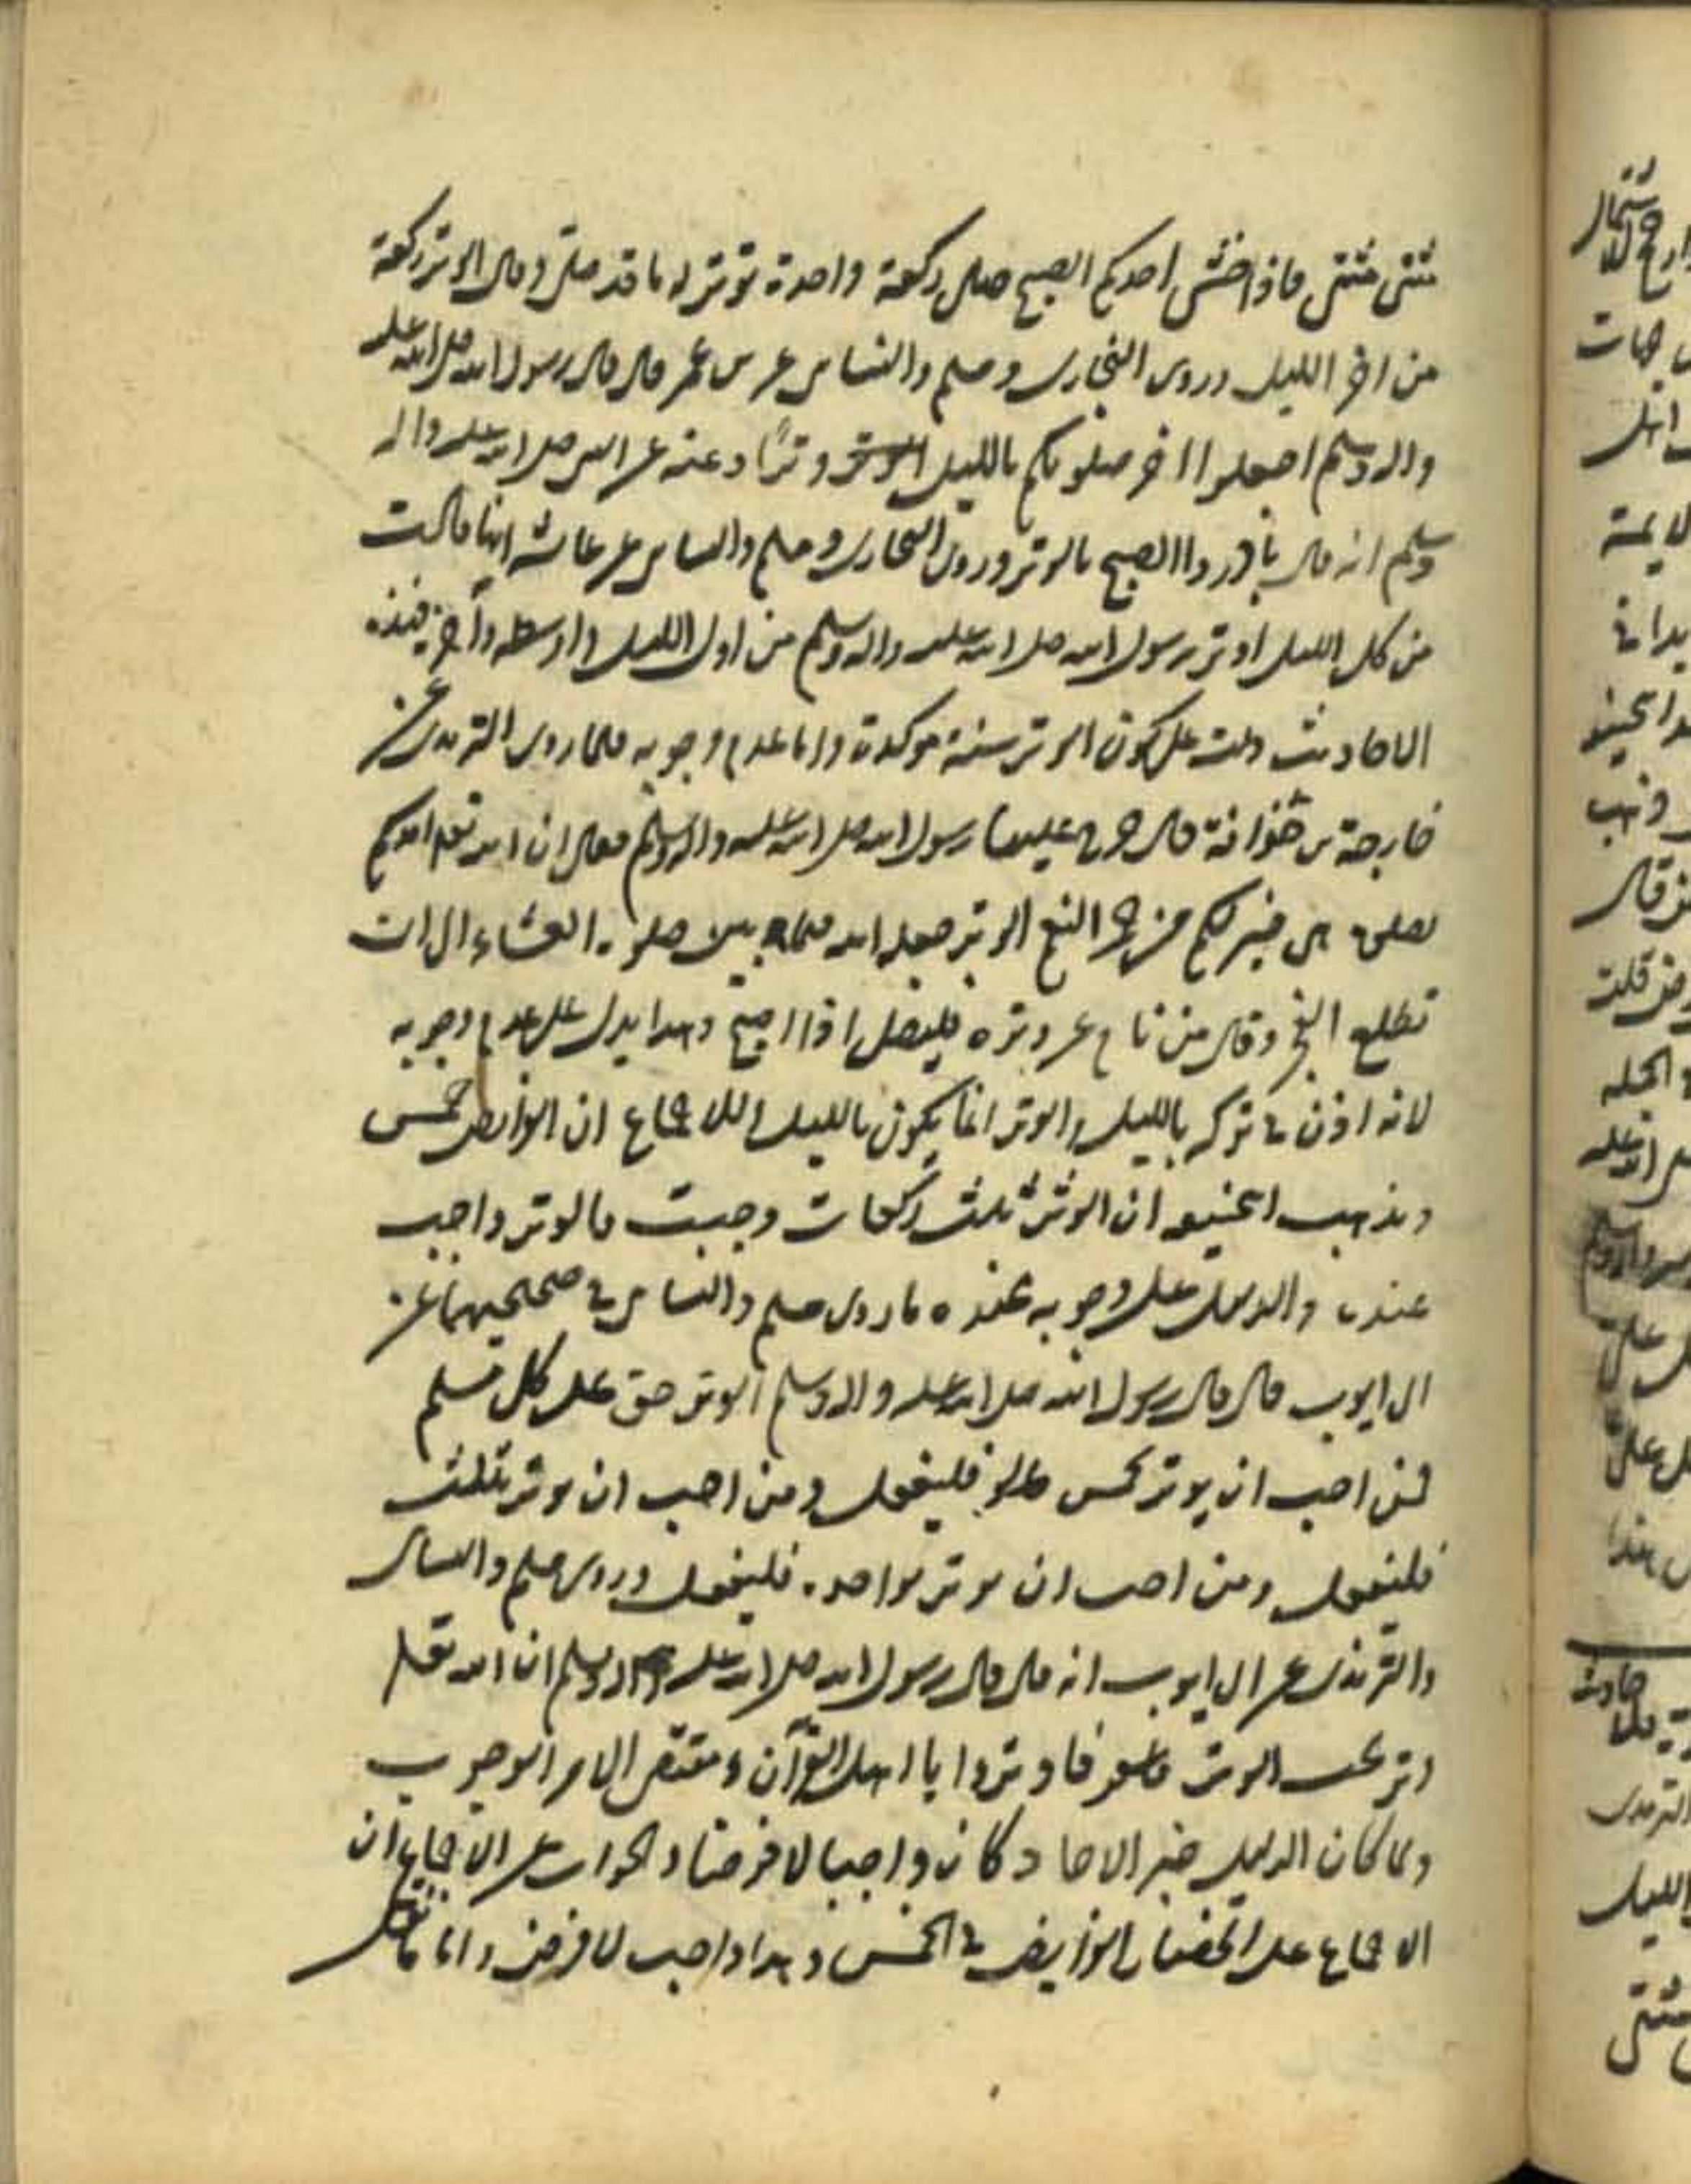 مثنى مثنى فاذا خشى احدكم الصبح صلى ركعة واحدة توتر له ما قد صلى وقال الوتر ركعة
من اخر الليل وروى البخارى ومسلم والنساى عن ابن عمر قال قال رسول الله صلى الله عليه
واله وسلم اجعلوا اخر صلوتكم بالليل وترًا وعنه عن النبى صلى الله عليه واله
وسلم انه قال بادروا الصبح بالوتر وروى البخارى ومسلم والنساى عن عائشة انها قالت
من كل الليل اوتر رسول الله صلى الله عليه واله وسلم من اول الليل واوسطه وآخره فهذه
الاحاديث دلت على كون الوتر سنة موكدة واما عدم وجوبه فلما روى الترمذى عن
خارجة بن حذافة قال خرج علينا رسول الله صلى الله عليه واله وسلم فقال ان الله تعالى امدكم
بصلوة هى خير لكم من حمر النعم الوتر جعله الله فيما بين صلوة العشاء الى ان
تطلع الفجر وقال من نام عن وتره فليصل اذا اصبح وهذا يدل على عدم وجوبه
لانه اذن فى تركه بالليل والوتر انما يكون بالليل للاجماع ان الفرايض خمس
ومذهب الحنيفة ان الوتر ثلث ركعات وجبت فالوتر واجب
عنده والدليل على وجوبه عنده ما روى مسلم والنساى فى صحيحيهما عن
ابى ايوب قال قال رسول الله صلى الله عليه واله وسلم الوتر حق على كل مسلم
فمن احب ان يوتر بخمس فليفعل ومن احب ان يوتر بثلث
فليفعل ومن احب ان يوتر بواحدة فليفعل وروى مسلم والنساى
والترمذى عن ابى ايوب انه قال قال رسول الله صلى الله عليه واله وسلم ان الله تعالى
وتر يحب الوتر فاوتروا يا اهل القرآن ومقتضى الامر الوجوب
ولما كان الدليل خبر الاحاد كان واجبا لا فرضا والجواب عن الاجماع ان
الاجماع على انحصار الفرايض فى الخمس وهذا واجب لا فرض وانا نقول